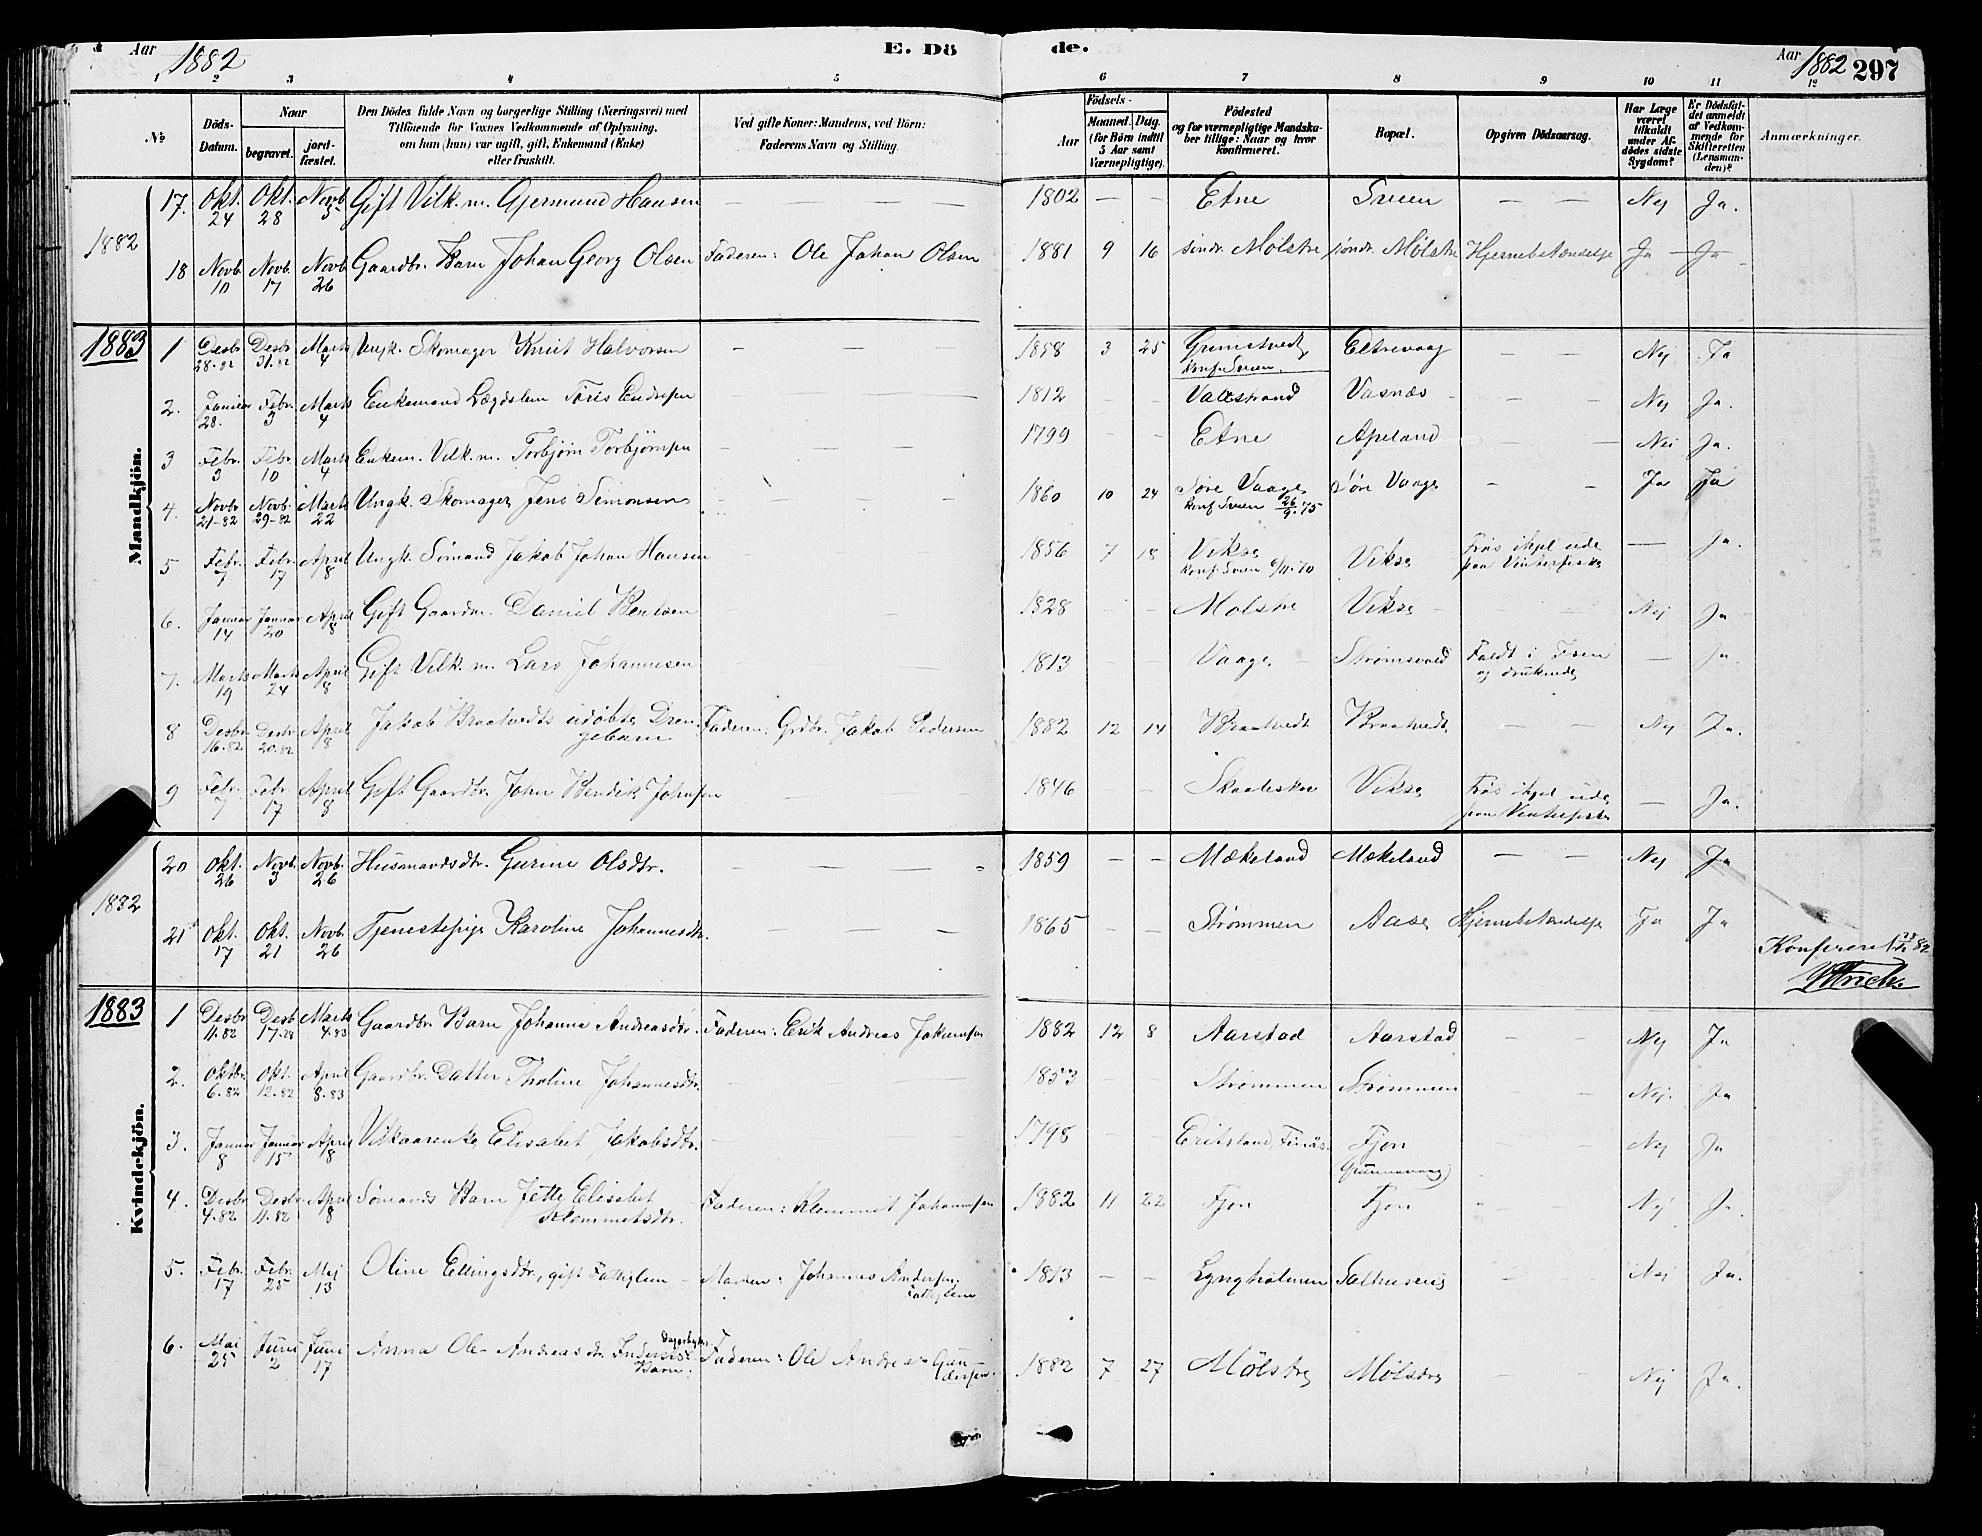 Aar 1882 E. Dö de. Aar 1882 297
1 2 3 4 5 6 7 8 9 10 11 12
№ Döds-Datum. Naar begravet. jordfæstet. Den Dödes fulde Navn og borgerlige Stilling (Næringsvei) med Tilföiende for Voxnes Vedkommende af Oplysning, om han (hun) var ugift, gift, Enkemand (Enke) eller fraskilt. Ved gifte Koner: Mandens, ved Börn: Faderens Navn og Stilling. Födsels- Aar Maaned. Dag. (for Börn indtil 5 Aar samt Værnepligtige). Födested og for værnepligtige Mandskaber tillige: Naar og hvor konfirmeret. Bopæl. Opgiven Dödsaarsag. Har Læge været tilkaldt under Afdödes sidste Sygdom? Er Dödsfaldet anmeldt af Vedkommende for Skifteretten (Lensmanden)? Anmærkninger.
Mandkjön.
1882
17. Okt. 24 Okt. 28 Novb. 5 Gift Vilk. m. Gjermund Hansen — — — — 1802 — — Etne Sveen — — Nej Ja.
18 Novb. 10 Novb. 17 Novb. 26 Gaardbr. Barn Johan Georg Olsen Faderen: Ole Johan Olsen 1881 9 16 søndr. Mølstre søndr. Mølstre Hjernebetændelse Ja Ja
1883
1 Desbr. 28.82 Desbr. 31.82 Marts 4 Ungk. Skomager Knut Halvorsen — — — 1858 3 25 Grimstvedt Konf. Sveen. Eltrevaag — — Nej Ja
2. Januar 28. Febr. 3 Marts 4 Enkemand Lægdslem Tøris Endresen — — — 1812 — — Valestrand Vasnæs — — Nej Ja.
3 Febr. 3 Febr. 10 Marts 4 Enkem. Vilk. m. Torbjørn Torbjørnsen — — — 1799 — — Etne Apeland — — Nei Ja.
4. Novbr 21-82 Novb. 29-82 Marts 22 Ungk. Skomager Jens Simonsen — — — 1860 10 24 Søre Vaage Konf Sveen 26/9.75 Søre Vaage — — Ja Ja
5 Febr. 7 Febr. 17 April 8 Ungk. Sømand Jakob Johan Hansen — 1856 7 18 Vikse Konf. Sveen 6/11.70 Vikse Frøs ihjel ude paa Vinterfiske — Ja.
6. Januar 14 Januar 20 April 8 Gift Gaardm. Daniel Bentsen — — 1828 — — Mølstre Vikse — Nej Ja
7. Marts 19 Marts 24 April 8 Gift Vilk. m. Lars Johannesen — — 1813 — — Vaage — Faldt i Søen og druknede — Ja.
8 Desbr. 16.82 Desbr. 20.82 April 8 Jakob Braatvedts udøbte Drengebarn Faderen: Grdbr. Jakob Pedersen 1882 12 14 Braatvedt Braatvedt — — Nej Ja.
9 Febr. 7 Febr. 17 April 8 Gift Gaardbr. John Bendik Johnsen — — 1846 — Vikse Frøs ihjel ude paa Vinterfiske — Ja.
Kvindekjön.
1882
20 Okt. 26 Novb. 3 Novb. 26 Husmandsdtr. Gurine Olsdtr. — — — — 1859 — — Mækeland Mækeland — — Nej Ja
21 Okt. 17 Okt. 21 Novb. 26 Tjenestepige Karoline Johannesdtr. — — — 1865 — — Strømmen Aase Hjernebetændelse Ja Ja
Konfereret 82
1883
1 Desbr 11.82 Desb. Marts 4.83 Gaardbr. Barn Johanna Andreasdtr. Faderen: Erik Andreas Jakobsen 1882 12 8 Aarstad Aarstad — — Nej Ja
2. Oktbr. 6.82 Okt. 12.82 April 8.83 Gaardbr. Datter Thaline Johannesdtr. — — — 1853 — Strømmen Strømmen — — Nej. Ja
3. Januar 8 Januar 15 April 8 Vilkaarenke Elisabet Jakobsdtr. — 1798 — — Eritsland, Finås. Fjon — — Nej Ja
4. Desbr. 4.82 Desbr. 11.82 April 8 Sømands Barn Jette Elisabet Klemmetsdtr. Faderen: Klemmet Johannesen 1882 11 22 Fjon (Gunnavaag) Fjon — — Nej Ja.
5. Febr. 17 Febr. 25 Mej 13 Oline Ellingsdtr., gift Fattiglem — Manden: Johannes Andersen, Fattiglem 1813 — — Lyngholmen Salhusvig — — Nej Ja.
6. Mai 25 Juni 2 Juni 17 Anna Ole Andreasdtr. Barn. Faderen: Ole Andreas Gundersen. 1882 7 27 Mølstre Mølstre — — Nej Ja.